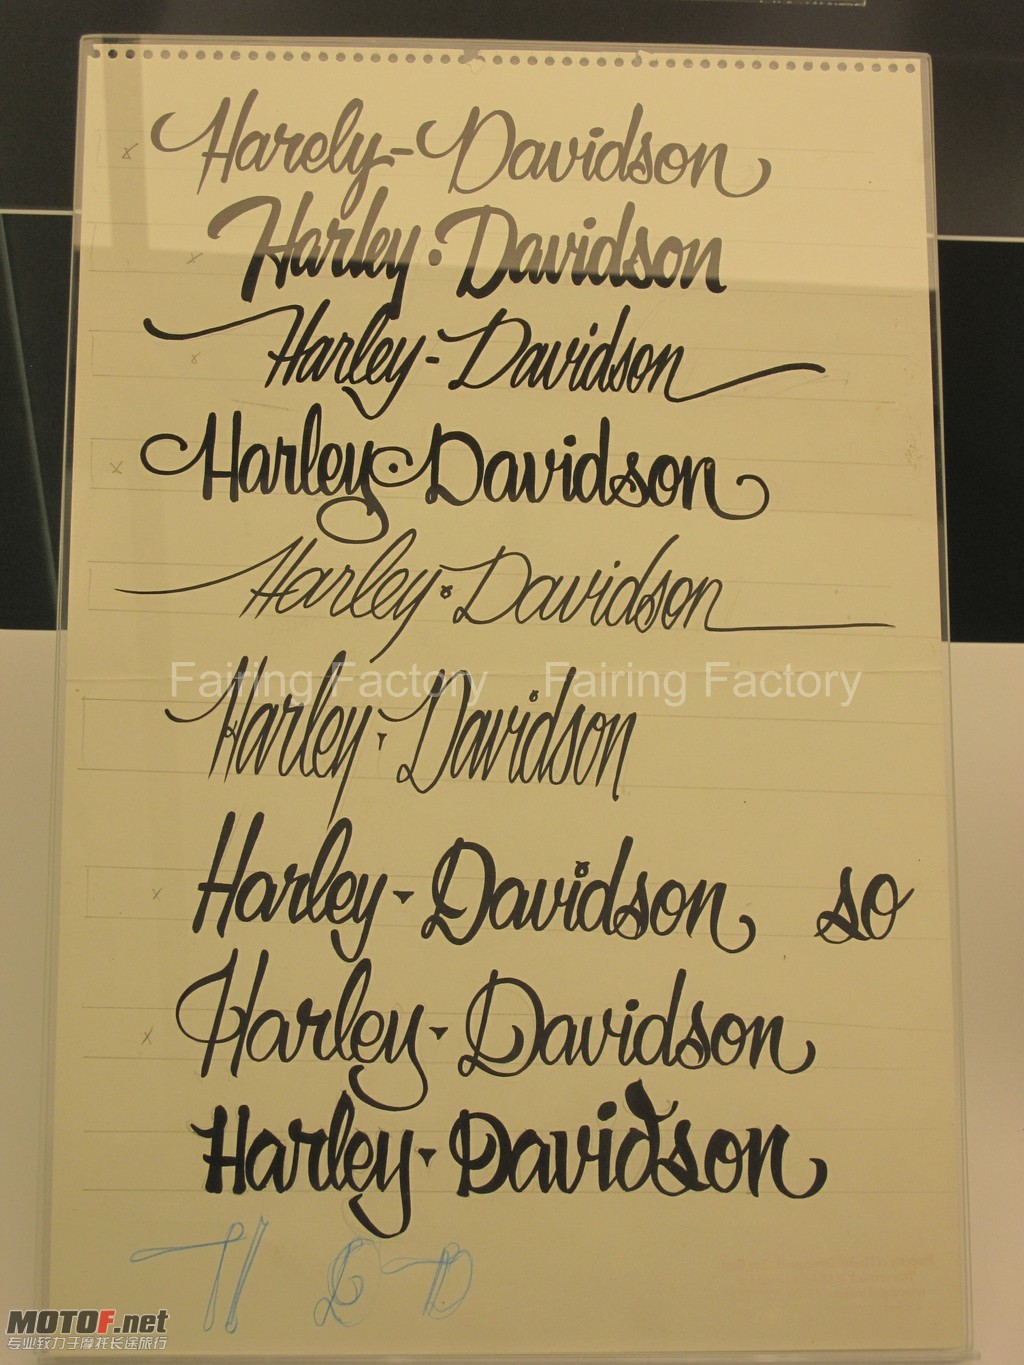 Harely-Davidson
Harley·Davidson
Harley-Davidson
Harley·Davidson
Harley·Davidson
Fairing Factory Fairing Factory
Harley·Davidson
Harley-Davidson so
Harley-Davidson
Harley·Davidson
H D D
MOTOF.net
专业致力于摩托长途旅行